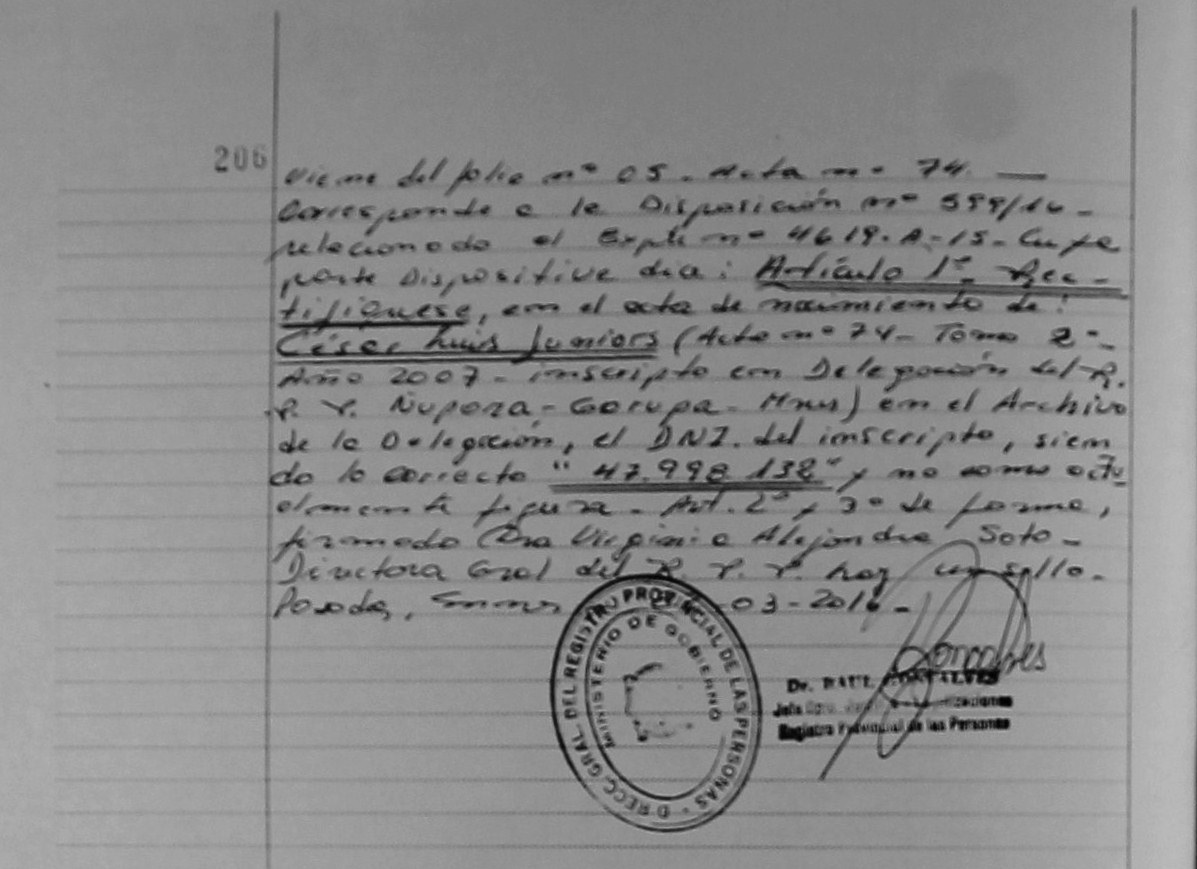 206
Viene del folio nº 05 - Acta nº 74. —
Corresponde a la Disposición nº 599/16 -
relacionado al Expte nº 4619-A-15- Cuya
parte Dispositiva dice: Artículo 1º- Rec-
tifíquese, en el acta de nacimiento de:
César Luis Juniors (Acta nº 74 - Tomo 2º-
Año 2007 - inscripto en Delegación del R.
P. P. Ñu Porá - Garupá - Mnes) en el Archivo
de la Delegación, el DNI. del inscripto, sien
do lo correcto "47.998.132" y no como actu
almente figura - Art. 2º y 3º de forma,
firmado Dra Virginia Alejandra Soto -
Directora Gral del R. P. P. hay un sello.
Posadas, 03-2016-
DIRECC. GRAL. DEL REGISTRO PROVINCIAL DE LAS PERSONAS
MINISTERIO DE GOBIERNO
Goncalves
Dr. RAUL GONCALVES
Jefe Dpto.
Registro Provincial de las Personas